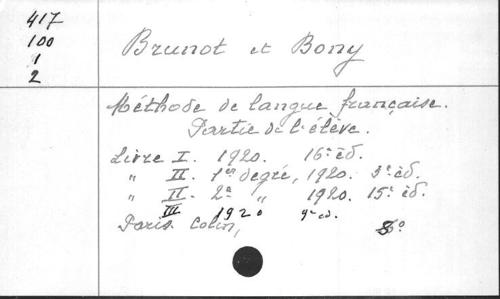 417
100
1
2
Brunot et Bony
Méthode de langue française.
Partie de l'élève.
Livre I. 1920. 16e éd.
" II. 1er degré, 1920. 3e éd.
" II. 2e " 1920. 15e éd.
III 1920 9e éd.
Paris Colin, 8o